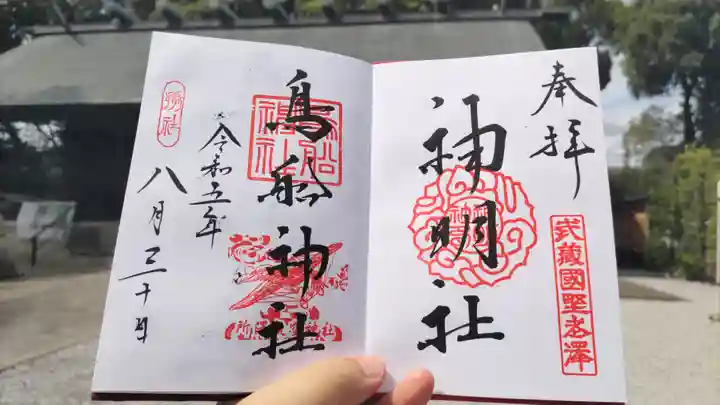 奉拝
神明社
武蔵國野老澤
鳥船神社
令和五年
八月三十日